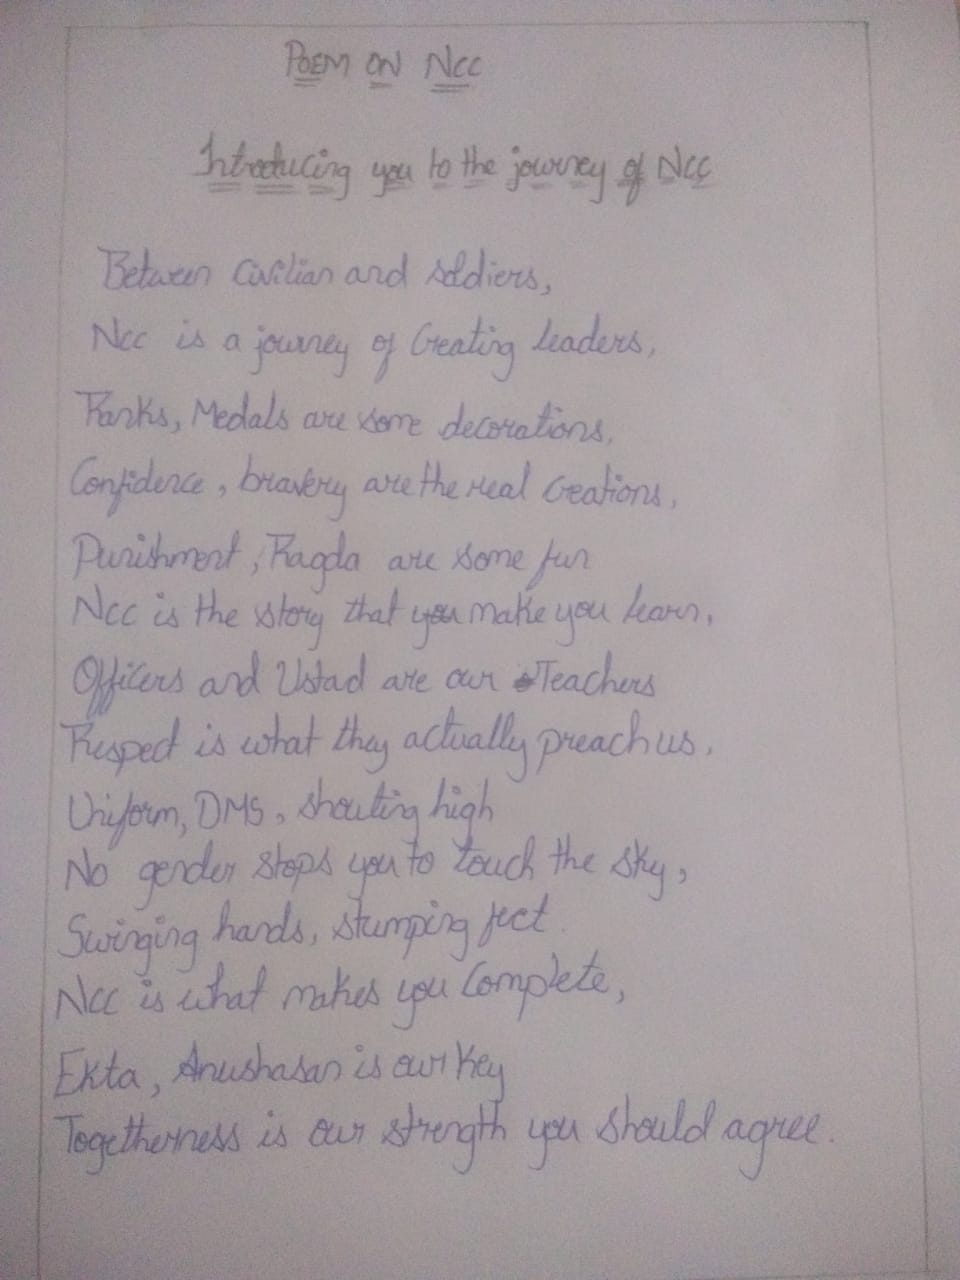 POEM ON NCC
Introducing you to the journey of NCC
Between Civilian and soldiers,
Ncc is a journey of Creating leaders,
Ranks, Medals are some decorations,
Confidence, bravery are the real Creations,
Punishment, Ragda are some fun
Ncc is the story that you make you learn,
Officers and Ustad are our Teachers
Respect is what they actually preach us,
Uniform, DMS, shouting high
No gender stops you to touch the sky,
Swinging hands, stumping feet.
Ncc is what makes you Complete,
Ekta, Anushasan is our key
Togetherness is our strength you should agree.